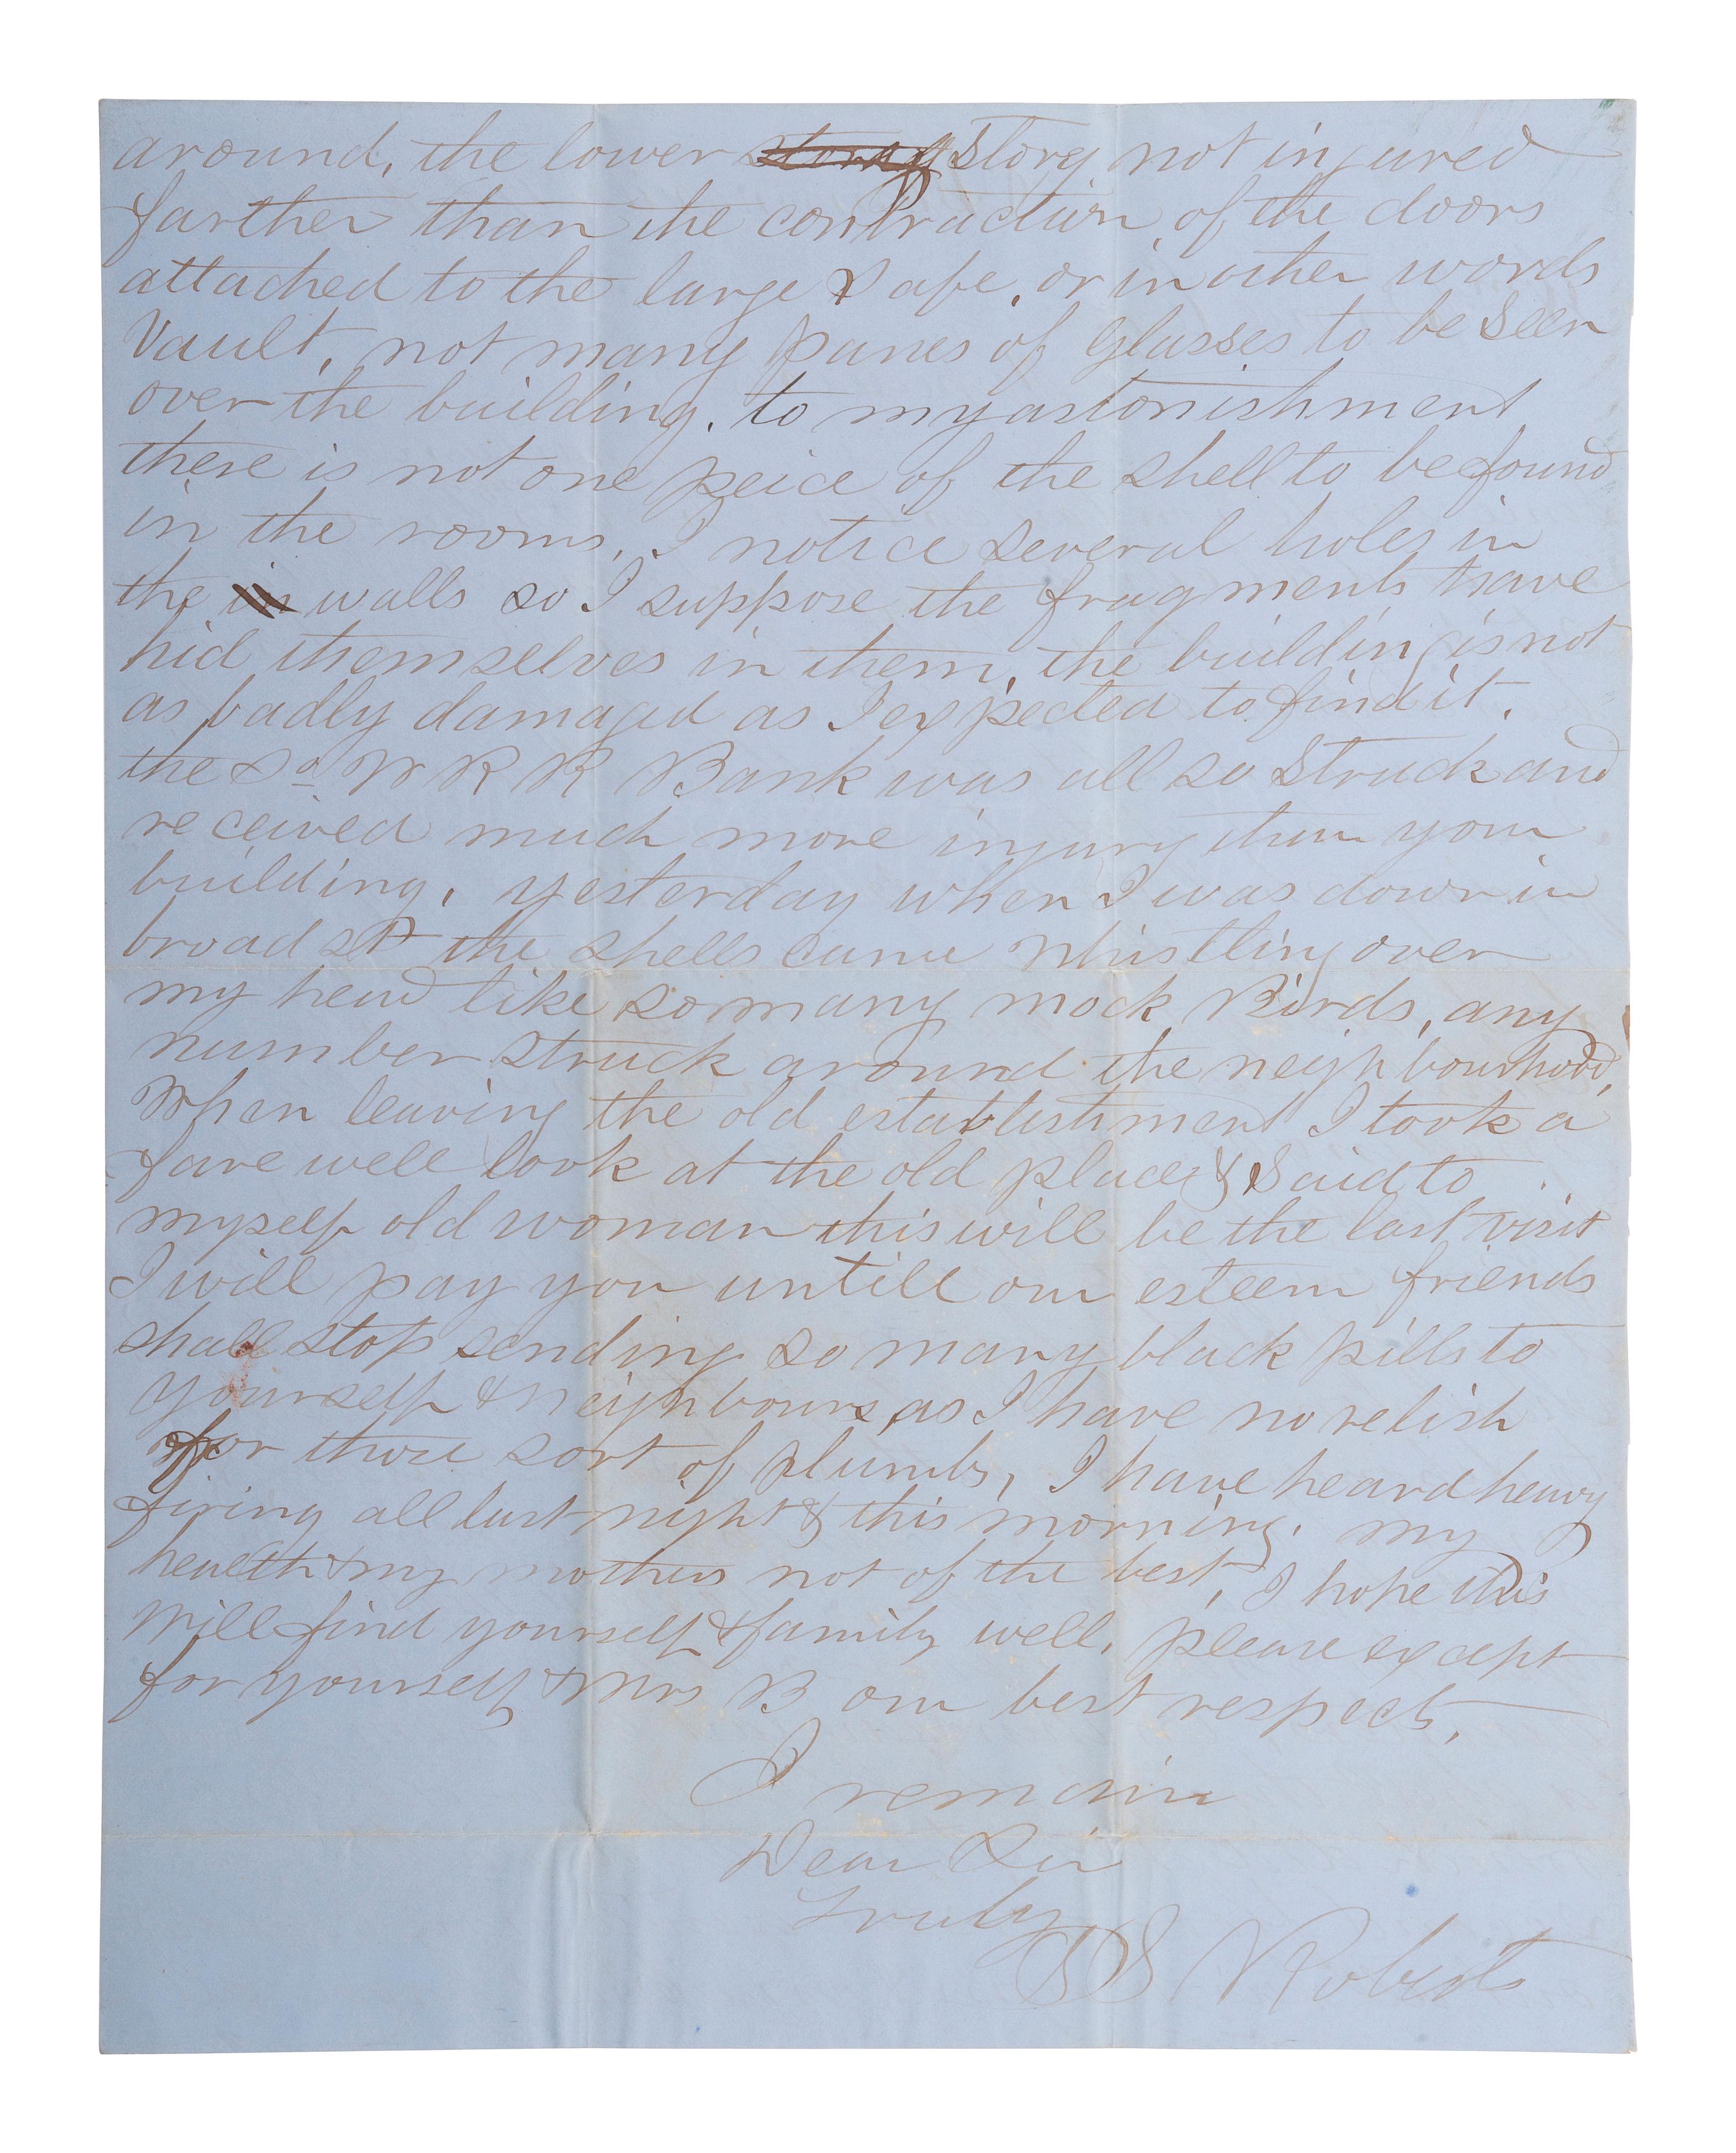 around, the lower story not injured
farther than the contraction of the doors
attached to the large Safe, or in other words
Vault, not many panes of glasses to be seen
over the building. to my astonishment
there is not one peice of the shell to be found
in the rooms, I notice several holes in
the in walls so I suppose the fragments have
hid themselves in them, the building is not
as badly damaged as I expected to find it.
the So W R R Bank was all so Struck and
received much more injury than your
building, yesterday when I was down in
broad St the shells came whistling over
my head like so many mock Birds, any
number struck around the neighbourhood,
When leaving the old establishment I took a
fare well look at the old place & Said to
myself old woman this will be the last visit
I will pay you untill our esteem friends
shall stop sending so many black pills to
yourself & neighbours, as I have no relish
for those sort of plumbs, I have heard heavy
firing all last night & this morning. my
health & my mothers not of the best, I hope this
will find yourself & family well, please except
for yourself & Mrs B our best respects.
I remain
Dear Sir
Truly
S Roberts